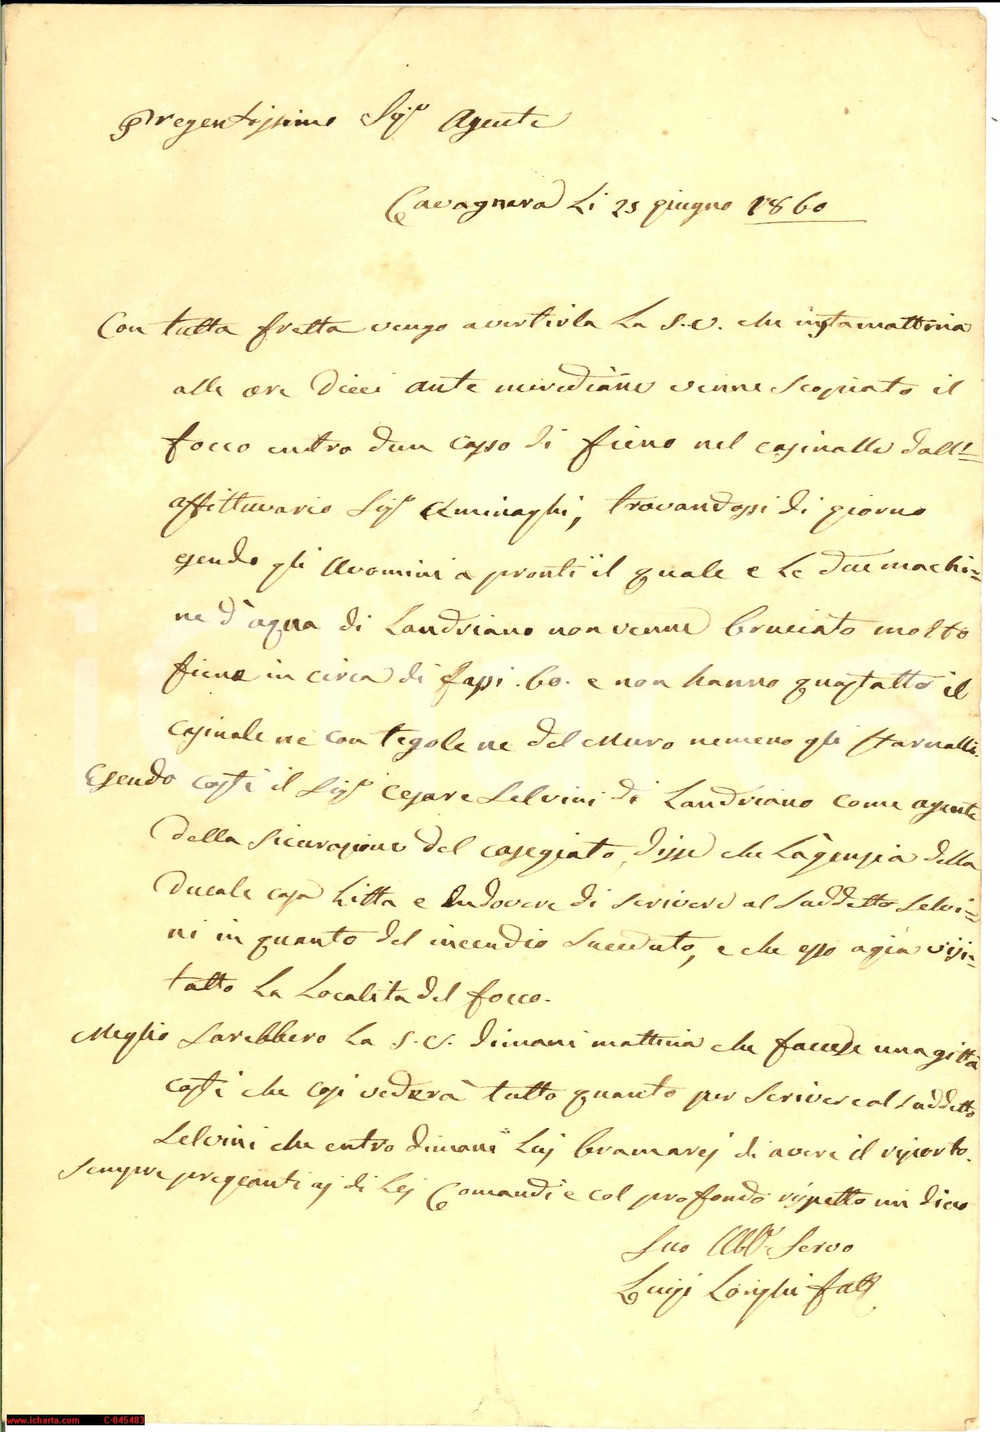 Pregentissimo Sigr Agente
Cavagnera Li 25 giugno 1860
Con tutta fretta vengo avertirla La S.V. che instamattina
alle ore Dieci ante meridiane venne Scopiato il
focco entro dun casso di fieno nel casinalle dall'
affittuvario Sigr trovandossi di giorno
esendo gli Uvomini a pronti il quale e Le due machi=
ne d'aqua di Landriano non venne bruciato molto
fieno in circa di fassi .60. e non hanno guastatto il
casinale ne con tegole ne del Muro nemeno gli
Esendo costi il Sigr Cesare Selvini di Landriano come agente
della Sicurazione del casegiato, disse che L'agenzia della
Ducale casa Litta e Indovere di Scrivere al Suddetto Selvi=
ni in quanto del incendio Suceduto, e che esso a gia visi=
tatto La Localita del focco.
Meglio Sarebbero La S.V. dimani mattina che facesse una gitta
costi che cosi vedera tutto quanto per Scrivere al Suddetto
Selvini che entro dimani Lui bramarej di avere il riporto.
Sempre di Lej Comandi e col profondo rispetto mi dico
Suo Servo
Luigi Longhi fatt
www.icharta.com C-045483